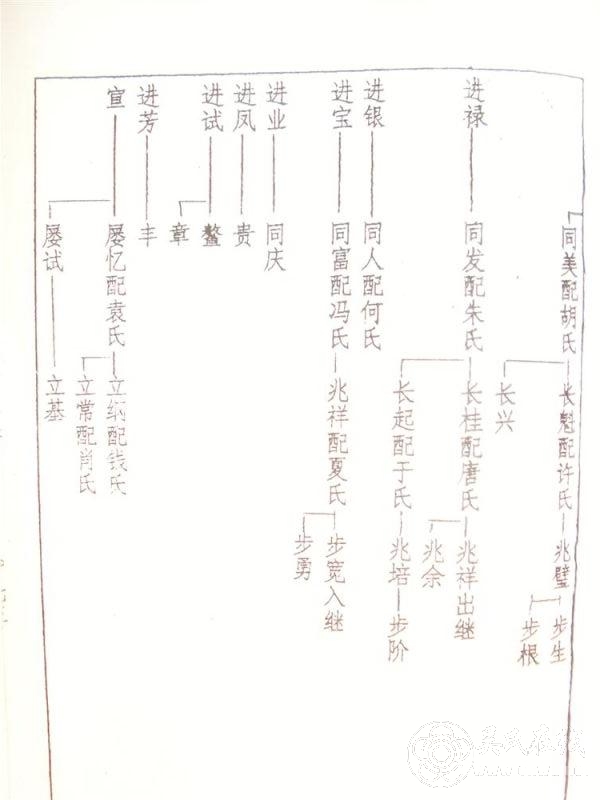 同美配胡氏
长魁配许氏
兆璧
步生
步根
长兴
进禄
同发配朱氏
长桂配唐氏
兆祥出继
兆余
长起配于氏
兆培
步阶
进银
同人配何氏
进宝
同富配冯氏
兆祥配夏氏
步宽入继
步勇
进业
同庆
进凤
贵
进试
鳌
章
进芳
丰
宣
屡忆配袁氏
立纲配钱氏
立常配肖氏
屡试
立基
吴氏在线